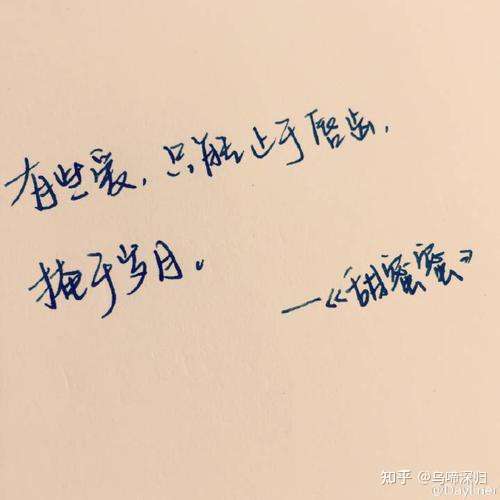 有些爱，只能止于唇齿，
掩于岁月。
—《甜蜜蜜》
知乎 @乌啼深归
@Dayliner